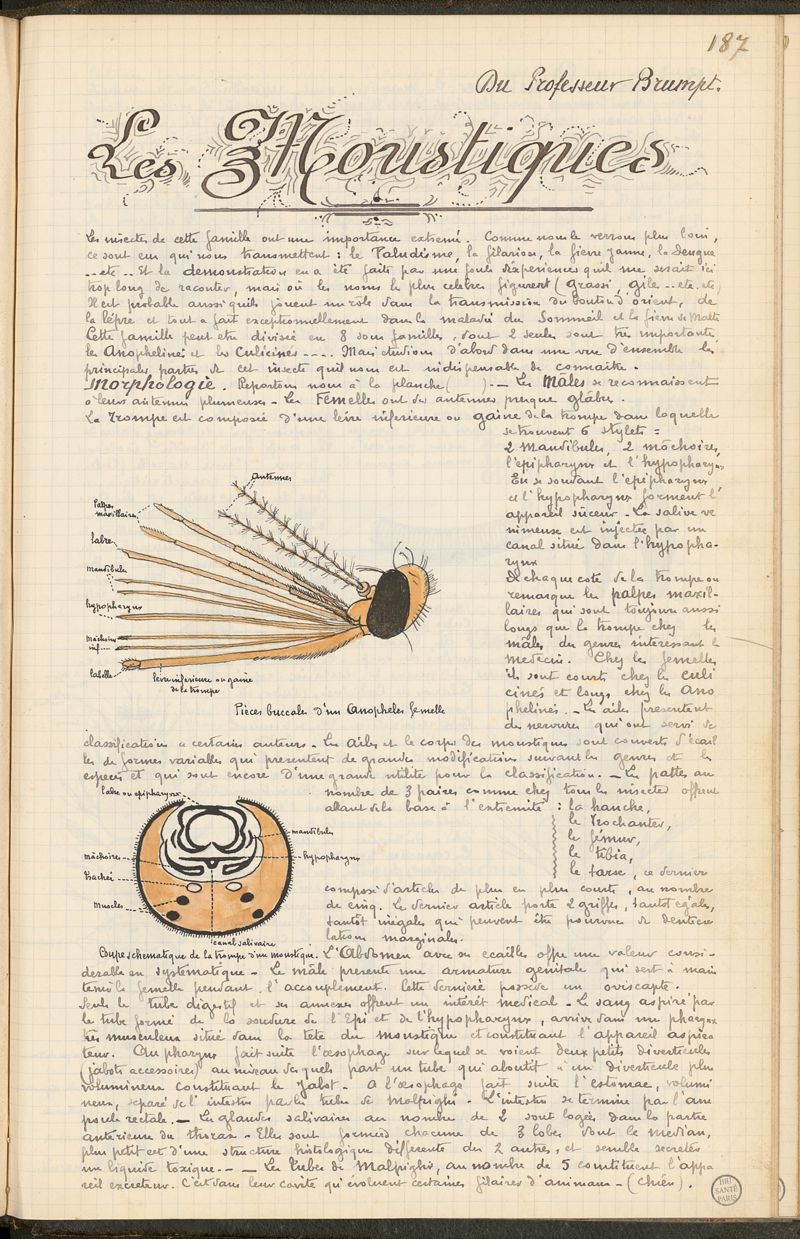 187
Du Professeur Brumpt.
Les Moustiques
Les insectes de cette famille ont une importance extreme. Comme nous le verrons plus loin,
ce sont eux qui nous transmettent : le Paludisme, la filariose, la fievre jaune, la Dengue
--etc-- Et la demonstration en a été faite par une foule d'experiences qu'il me serait ici
trop long de raconter, mais où les noms les plus celebres figurent (Grassi, Gile -- etc. etc)
Il est probable aussi qu'ils jouent un role dans la transmission du bouton d'orient, de
la lépre et tout a fait exceptionnellement dans la maladie du Sommeil et la fievre de Malte
Cette famille peut etre divisée en 8 sous familles, dont 2 seules sont tres importantes,
les Anophelinés et les Culicinés ---- Mais etudions d'abord dans une vue d'ensemble les
principales parties de cet insecte qu'il nous est indispensable de connaitre.
Morphologie. Reportons nous à la planche ( ) - Les Mâles se reconnaissent
à leurs antennes plumeuses - Les Femelles ont des antennes presque glabres.
La Trompe est composée d'une levre inferieure ou gaine de la trompe dans laquelle
se trouvent 6 stylets =
2 mandibules, 2 mâchoires,
l'epipharynx et l'hypopharynx
En se soudant l'epipharynx
et l'hypopharynx forment l'
appareil suceur - La salive ve
nimeuse est injectée par un
canal situé dans l'hypopha-
rynx
De chaque coté de la trompe on
remarque les palpes maxil-
laires qui sont toujours aussi
longs que la trompe chez les
mâles des genres intéressant la
medecine. Chez les femelles
ils sont courts chez les culi
cinés et longs chez les Ano
phelinés. - Les ailes presentent
des nervures qui ont servi de
antennes
Palpes
maxillaires
Labre
mandibules
hypopharynx
Mâchoires
inf....
Labelle
Lèvre inferieure ou gaine
de la trompe
Pièces buccales d'un Anopheles femelle
classification a certains auteurs - Les ailes et le corps des moustiques sont couverts d'écail
les de formes variables qui presentent de grandes modifications suivant les genres et les
especes et qui sont encore d'une grande utilité pour la classification. - Les pattes au
nombre de 3 paires comme chez tous les insectes offrent
allant de la base à l'extremité : la hanche,
le Trochanter,
le fémur,
le tibia,
le tarse, ce dernier
composé d'articles de plus en plus courts, au nombre
de cinq. Le dernier article porte 2 griffes, tantot egales,
tantôt inégales qui peuvent être pourvues de denticu
lations marginales.
Labre ou epipharynx
mandibules
mâchoires
hypopharynx
Trachée
Muscles
canal salivaire
Coupe schematique de la trompe d'un moustique.
L'Abdomen avec ses ecailles offre une valeur consi-
derable en systematique - Le mâle presente une armature genitale qui sert à main
tenir la femelle pendant l'accouplement. Cette derniere possede un oviscapte.
Seuls le tube digestif et ses annexes offrent un intérêt medical - Le sang aspiré par
le tube formé de la soudure de l'Epi et de l'hypopharynx, arrive dans un pharynx
très musculeux situé dans la tete du moustique et constituant l'appareil aspira
teur. Au pharynx fait suite l'œsophage sur lequel se voient deux petits diverticules
(jabots accessoires) au niveau desquels part un tube qui aboutit a un diverticule plus
volumineux constituant le Jabot - A l'œsophage fait suite l'estomac, volumi
neux, separé de l'intestin par les tubes de Malpighi - L'intestin se termine par l'am
poule rectale. - Les glandes salivaires au nombre de 2 sont logées dans la partie
antérieure du thorax - Elles sont formées chacune de 3 lobes dont le médian,
plus petit est d'une structure histologique differente des 2 autres, et semble secreter
un liquide toxique. -- Les tubes de Malpighi, au nombre de 5 constituent l'appa
reil excreteur. C'est dans leur cavité qu'évoluent certaines filaires d'animaux - (chien).
BIU
SANTÉ
PARIS